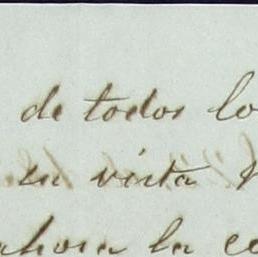 de todos lo
su vista
ahora la co